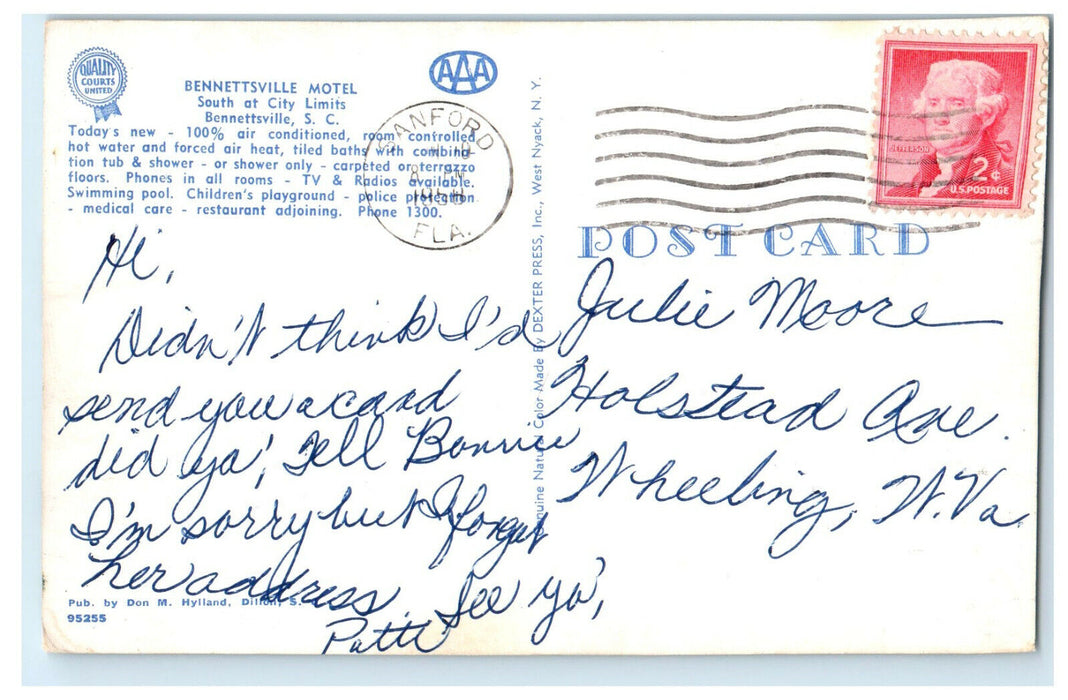 QUALITY
COURTS
UNITED
AAA
BENNETTSVILLE MOTEL
South at City Limits
Bennettsville, S. C.
Today's new - 100% air conditioned, room controlled
hot water and forced air heat, tiled baths with combina-
tion tub & shower - or shower only - carpeted or terrazzo
floors. Phones in all rooms - TV & Radios available.
Swimming pool. Children's playground - police protection
- medical care - restaurant adjoining. Phone 1300.
SANFORD
FLA.
JEFFERSON
2¢
U.S. POSTAGE
POST CARD
Genuine Natural Color Made By DEXTER PRESS, Inc., West Nyack, N. Y.
Hi,
Didn't think I'd
send you a card
did ya', Tell Bonnie
I'm sorry but I forgot
her address. See ya',
Patti
Julie Moore
Holstead Ave.
Wheeling, W.Va.
Pub. by Don M. Hylland, Dillon, S.
95255